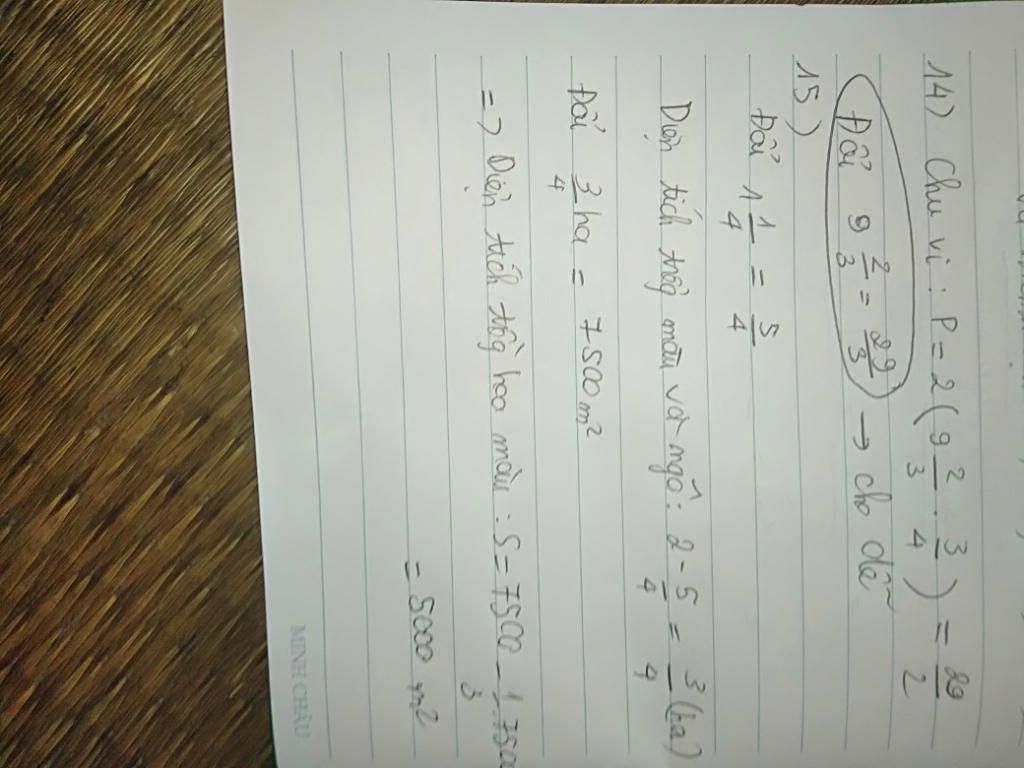 14) Chu vi : P = 2 ( 9 2/3 . 3/4 ) = 29/2
Đổi 9 2/3 = 29/3 → cho dễ
15)
Đổi 1 1/4 = 5/4
Diện tích trồng màu và ngô : 2 - 5/4 = 3/4 (ha)
Đổi 3/4 ha = 7500 m²
=> Diện tích trồng hoa màu : S = 7500 - 1/3 . 7500
= 5000 m²
MINH CHÂU